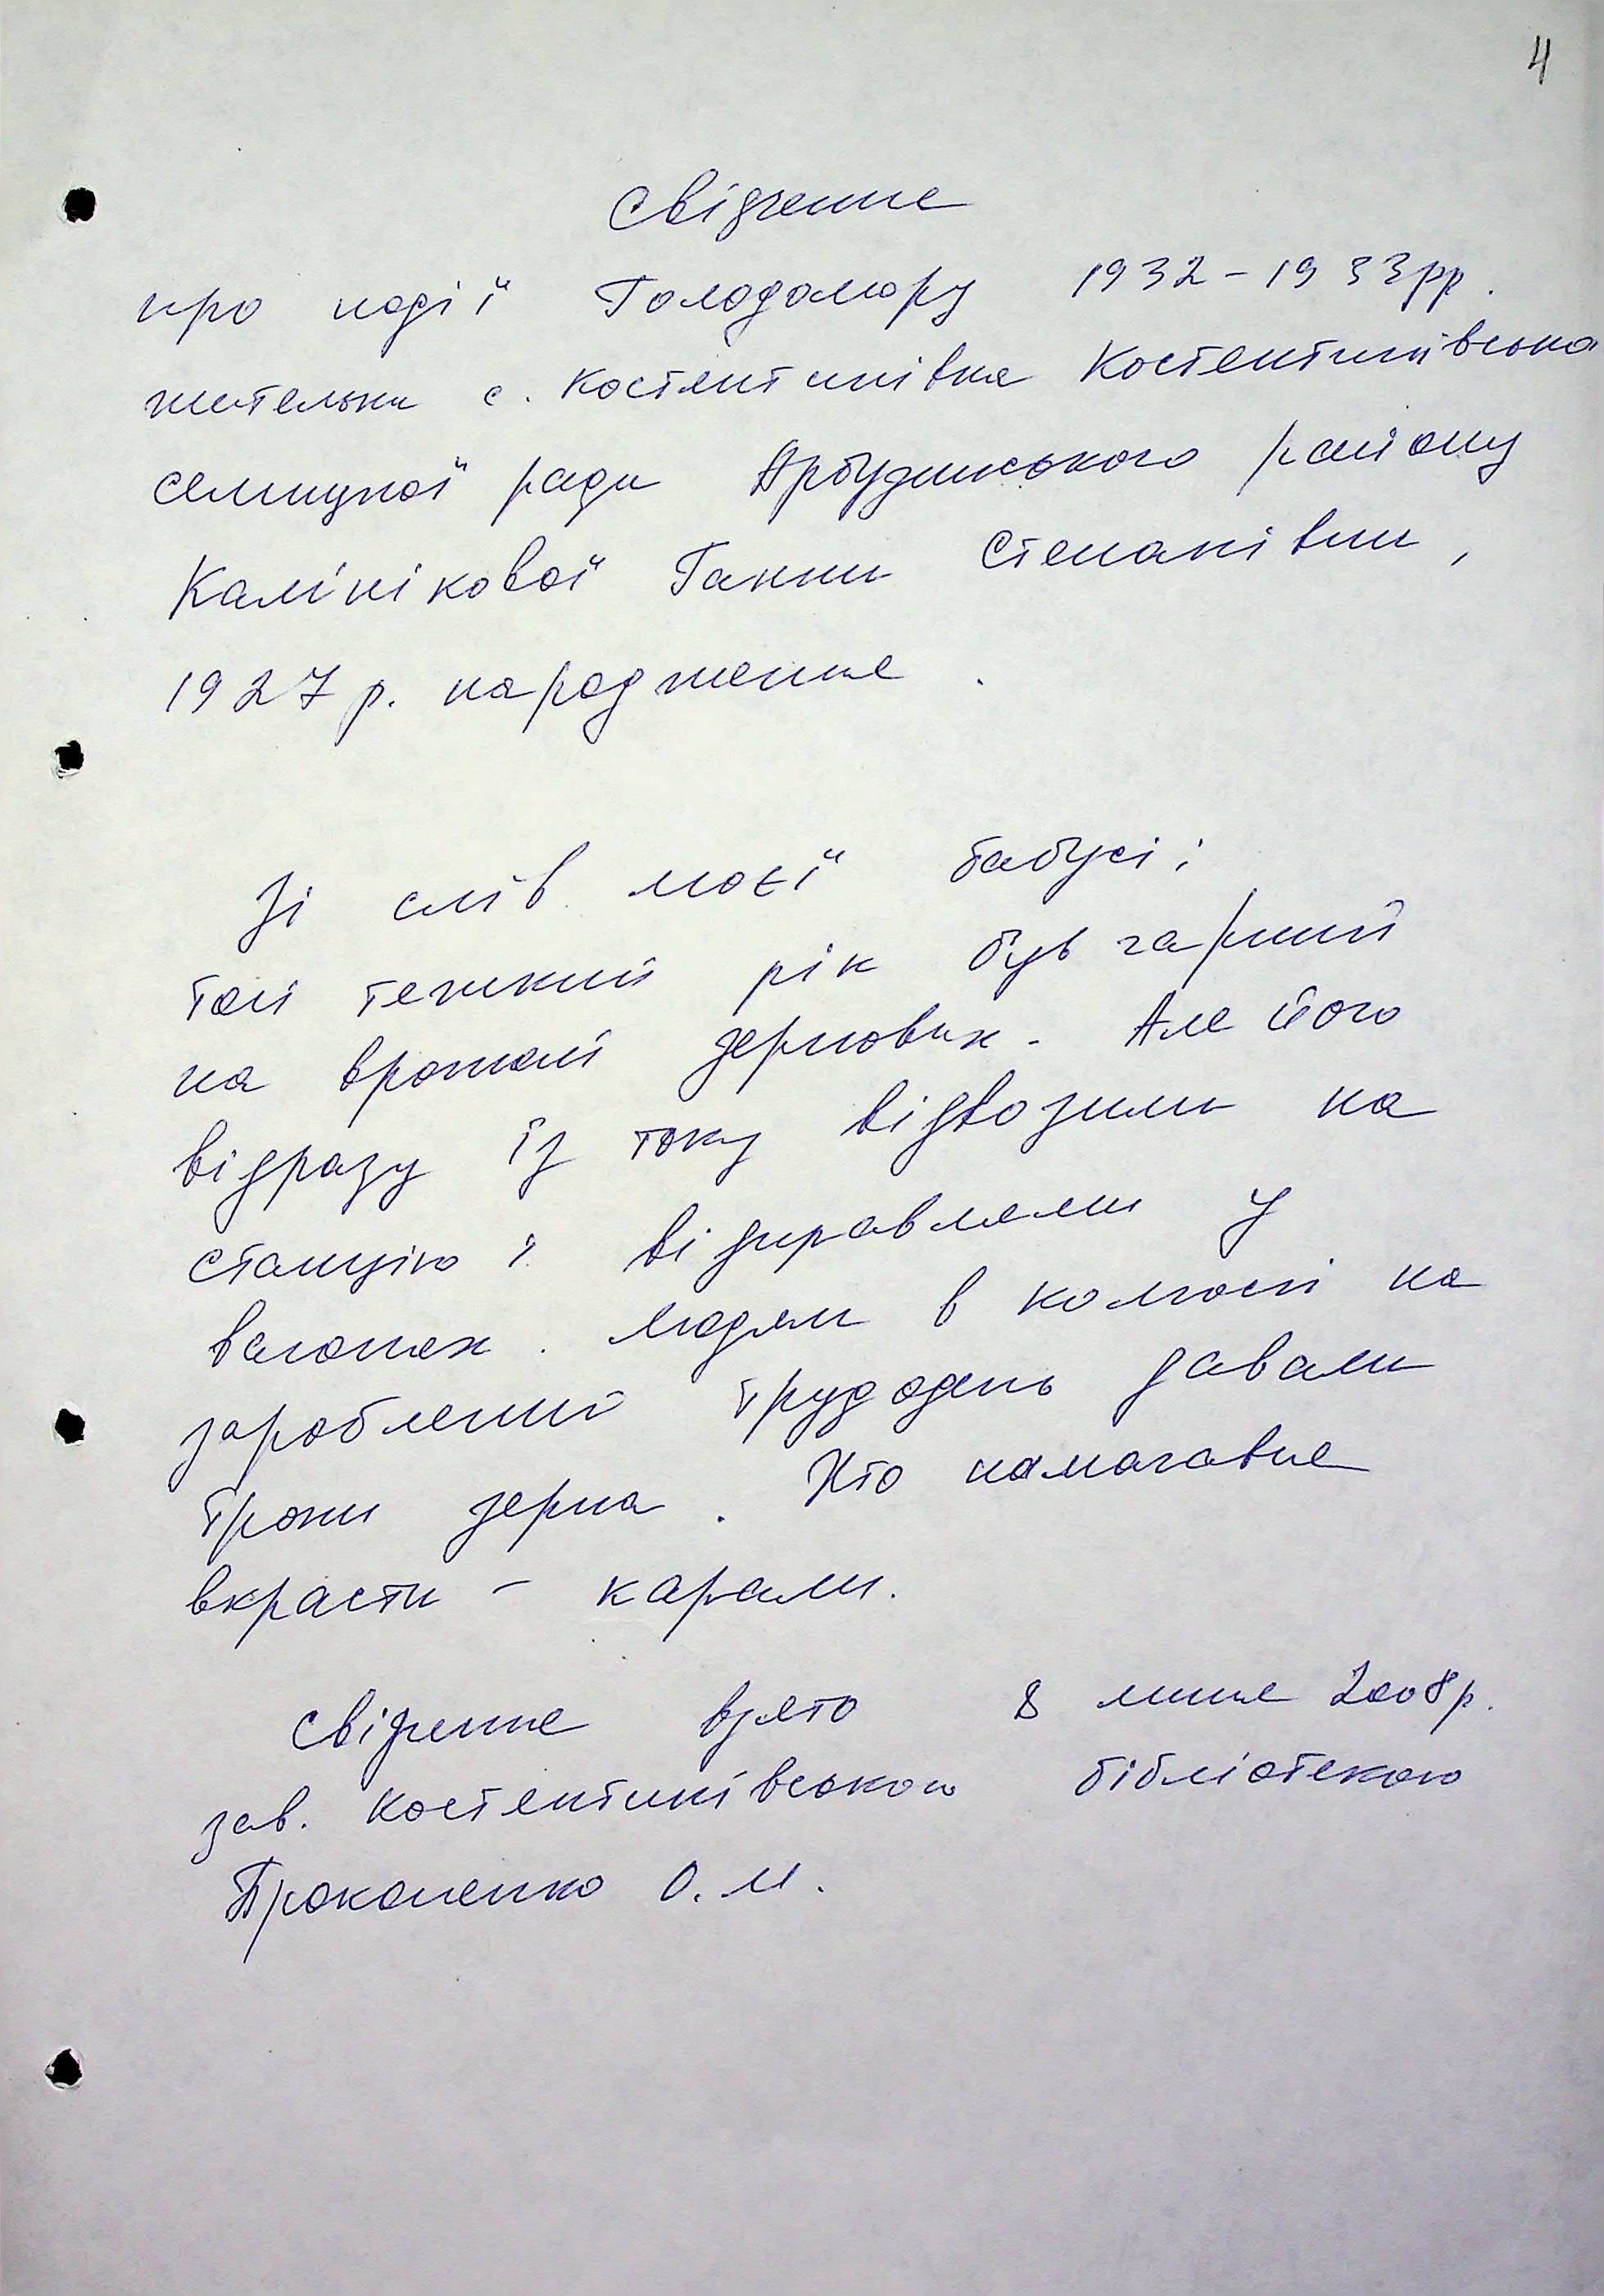 4
Свідчення
про події Голодомору 1932-1933рр.
жительки с. Костянтинівка Костянтинівська
селищної ради Арбузинського району
Калінікової Ганни Степанівни,
1927 р. народження.
Зі слів моєї бабусі:
той тяжкий рік був гарний
на врожай зернових. Але його
відразу із току відвозили на
станцію і відправляли у
вагонах. Людям в колгоспі на
зароблений трудодень давали
трохи зерна. Хто намагався
вкрасти - карали.
Свідчення взято 8 липня 2008р.
зав. Костянтинівською бібліотекою
Прокопенко О. М.